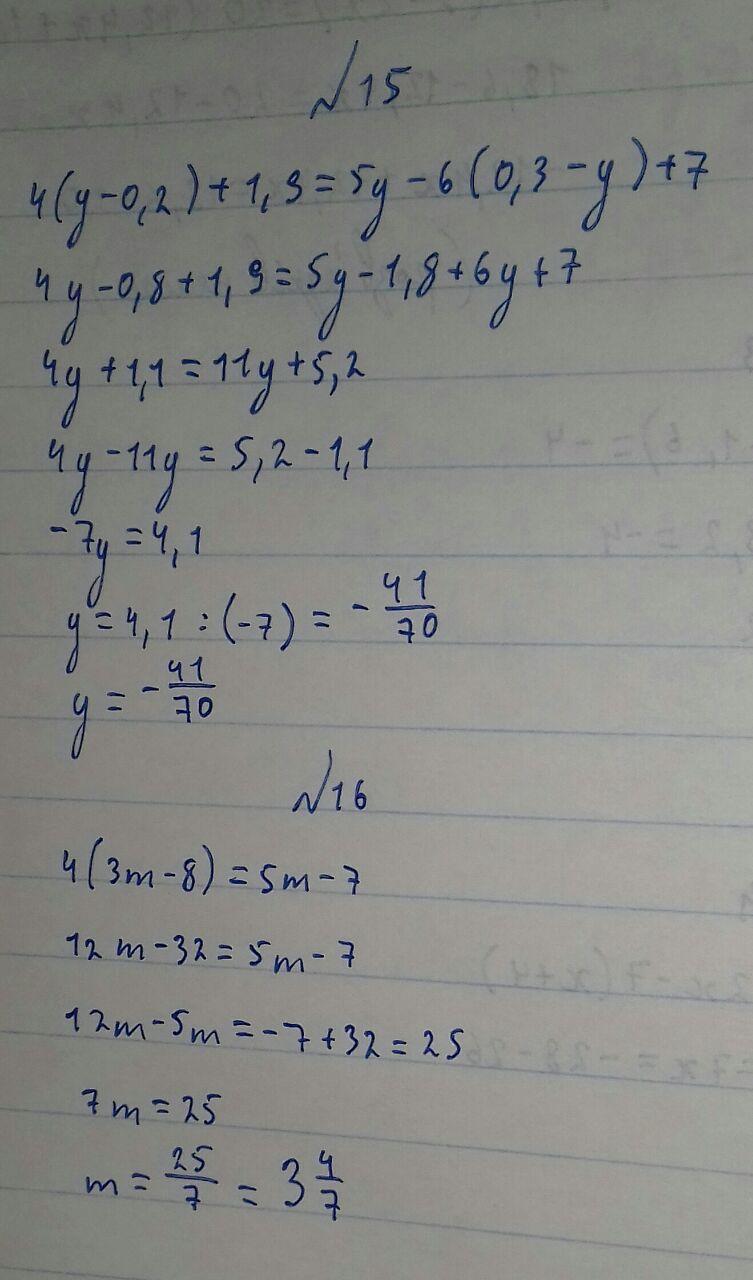 №15
4(y-0,2)+1,9=5y-6(0,3-y)+7
4y-0,8+1,9=5y-1,8+6y+7
4y+1,1=11y+5,2
4y-11y=5,2-1,1
-7y=4,1
y=4,1:(-7)=-41/70
y=-41/70
№16
4(3m-8)=5m-7
12m-32=5m-7
12m-5m=-7+32=25
7m=25
m=25/7=3 4/7